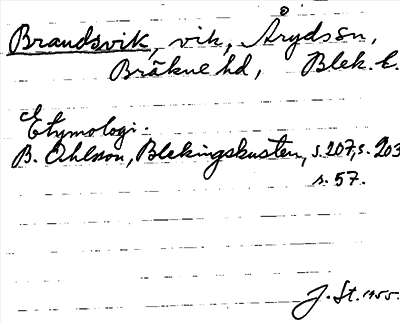 Brandsvik, vik, Åryds sn,
Bräkne hd, Blek. l.
Etymologi.
B. Ohlsson, Blekingskusten, s. 207, s. 203
s. 57.
J. St. 1955.